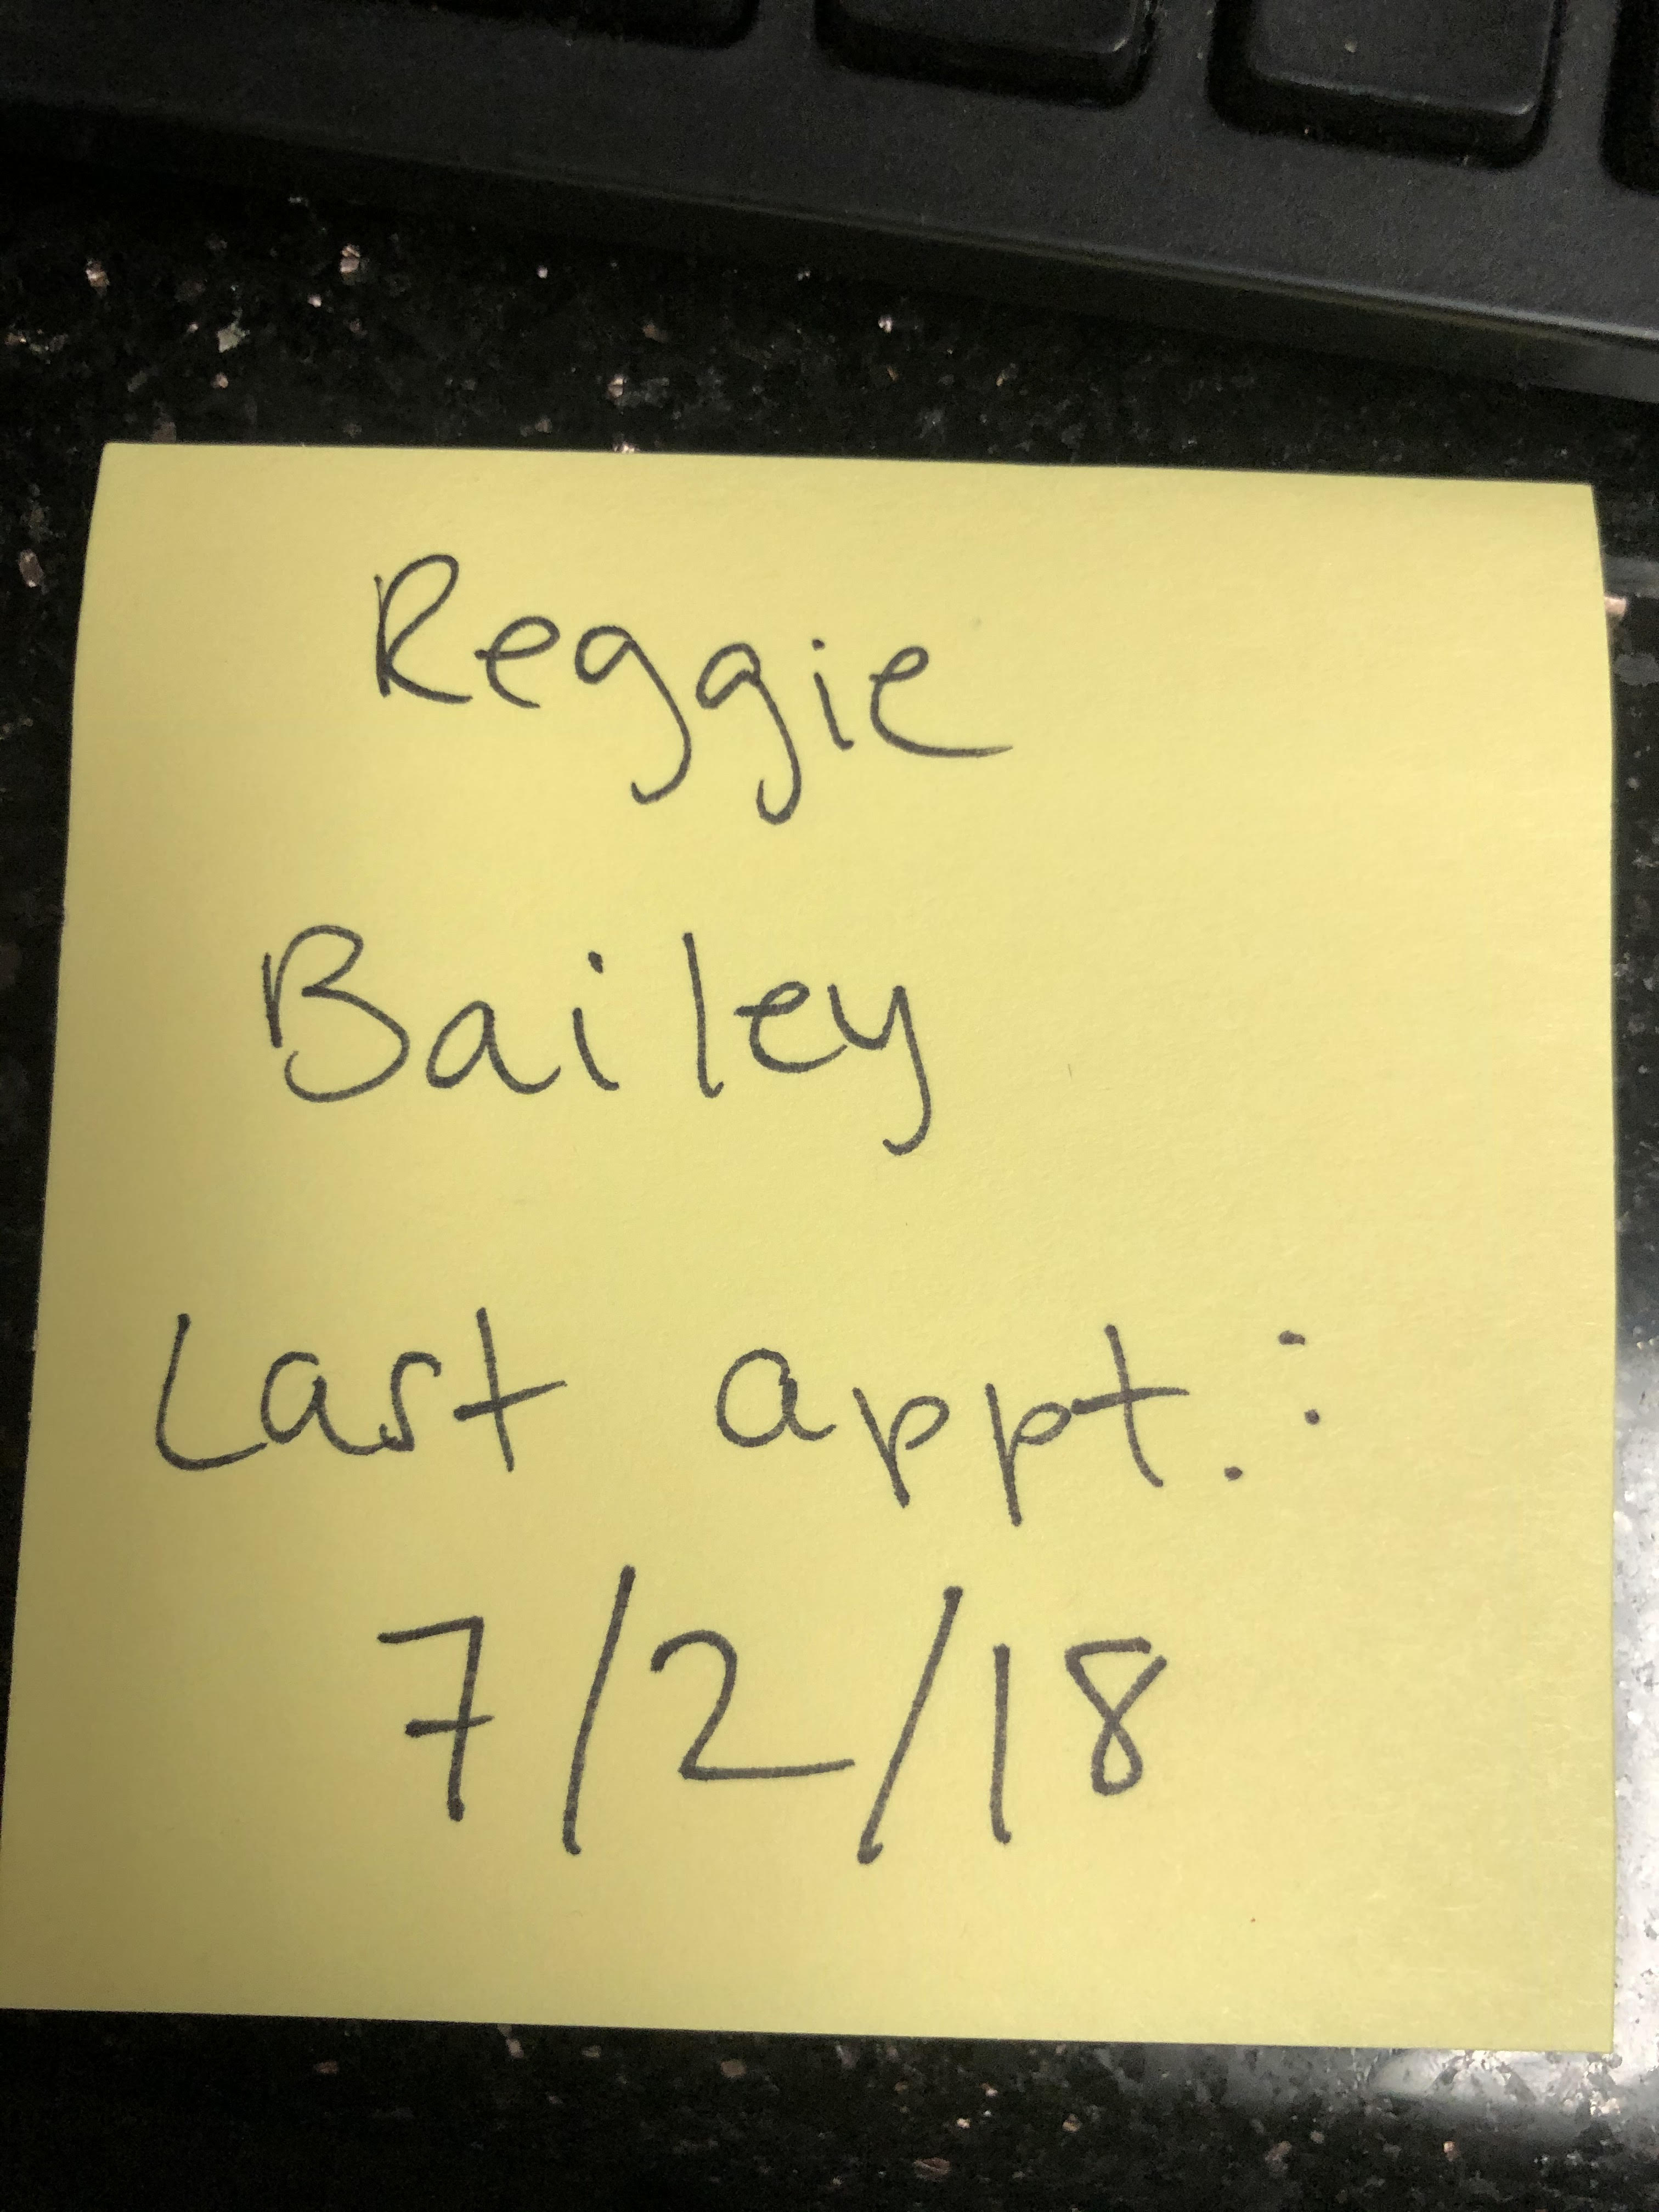 Reggie
Bailey
Last appt.:
7/2/18